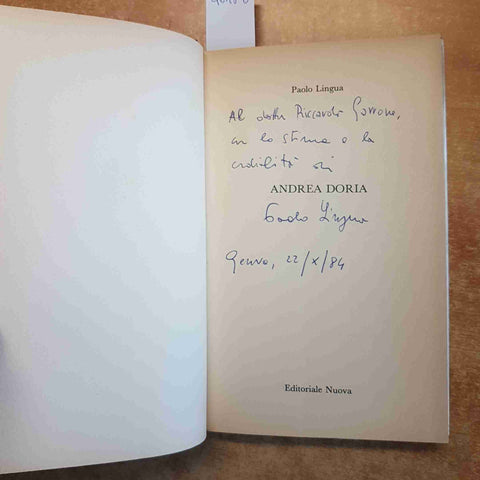 Paolo Lingua
Al dott. Riccardo Garrone,
con la stima e la
cordialità di
ANDREA DORIA
Paolo Lingua
Genova, 22/X/84
Editoriale Nuova